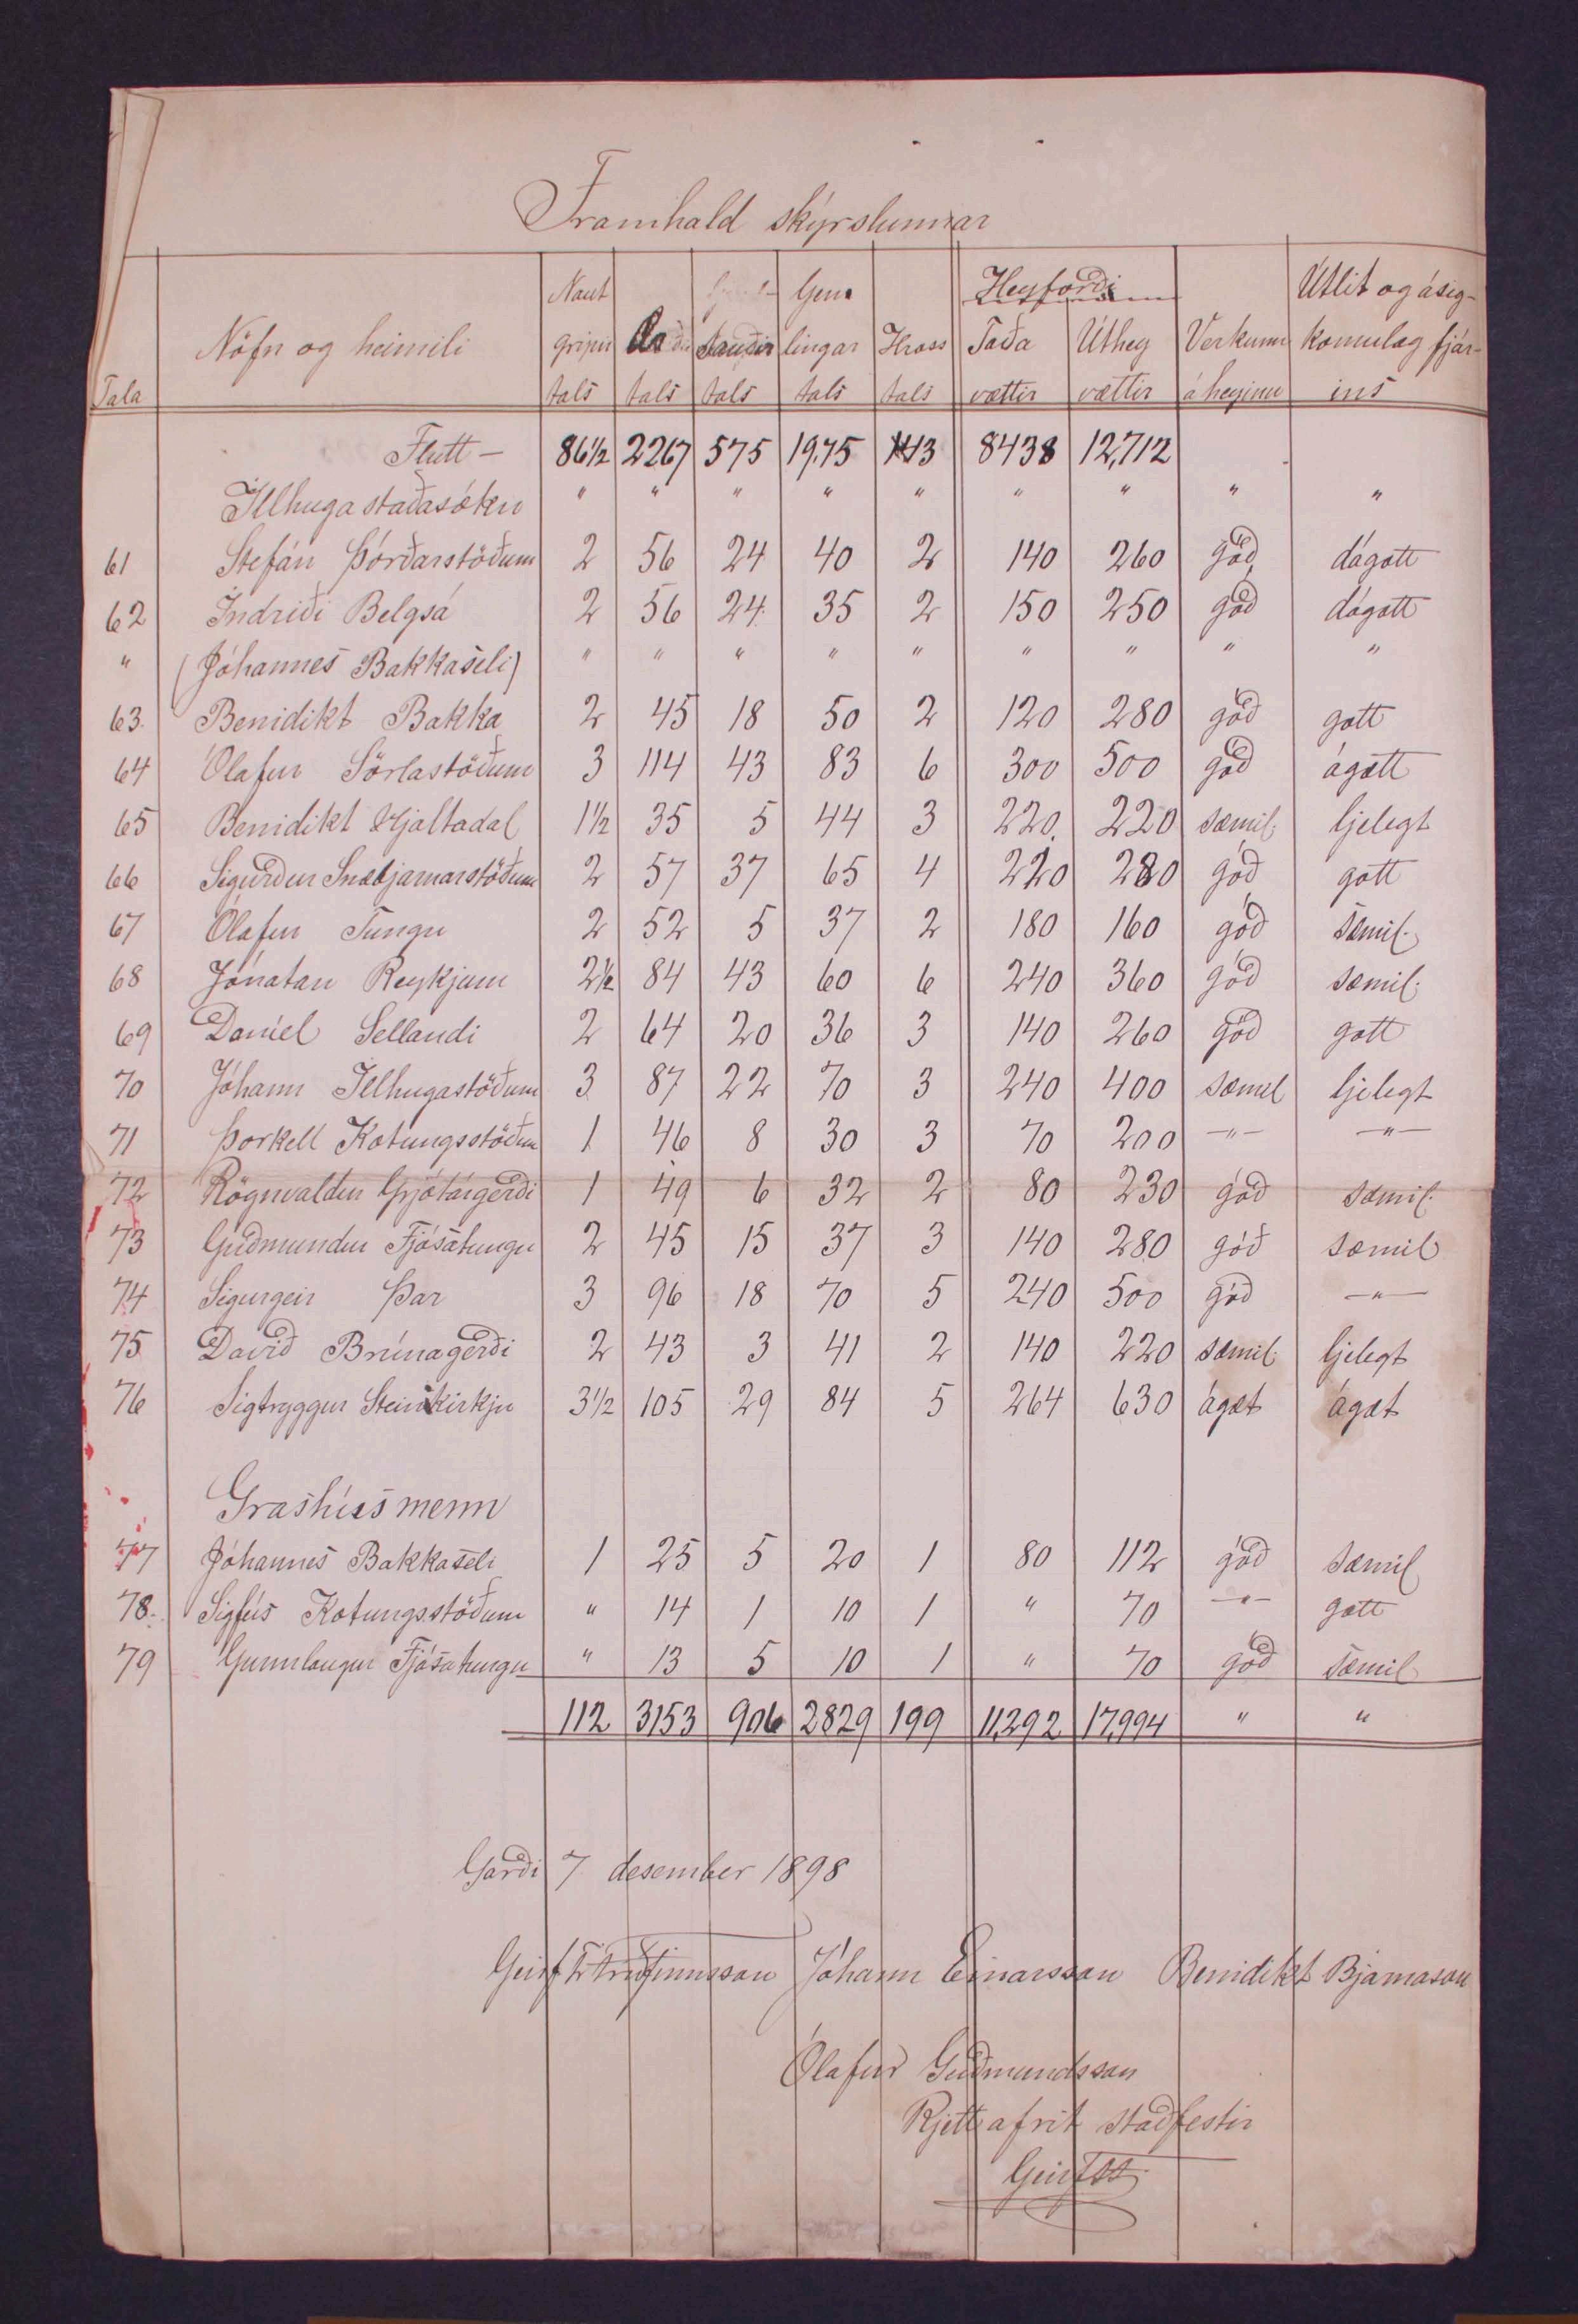 Framhald skýrslunnar
Tala Nöfn og heimili Naut gripir tals tals Sauðir tals Gem lingar tals Hross tals Heyforði Taða vættir Úthey vættir Verkunn á heyinu Útlit og ásig- komulag fjár- ins
Flutt — 86½ 2267 575 1975 143 8438 12,712
Illhugastaðasókn " " " " " " " " "
61 Stefán Þórðarstöðum 2 56 24 40 2 140 260 góð dágott
62 Indriði Belgsá 2 56 24 35 2 150 250 góð dágott
" (Jóhannes Bakkaseli) " " " " " " " " "
63. Benidikt Bakka 2 45 18 50 2 120 280 góð gott
64 Ólafur Sörlastöðum 3 114 43 83 6 300 500 góð ágætt
65 Benidikt Hjaltadal 1½ 35 5 44 3 220. 220 sæmil. ljelegt
66 Sigurður Snæbjarnarstöðum 2 57 37 65 4 220 280 góð gott
67 Ólafur Tungu 2 52 5 37 2 180 160 góð sæmil.
68 Jónatan Reykjum 2½ 84 43 60 6 240 360 góð sæmil.
69 Daníel Sellandi 2 64 20 36 3 140 260 góð gott
70 Jóhann Illhugastöðum 3 87 22 70 3 240 400 sæmil ljelegt
71 Þorkell Kotungsstöðum 1 46 8 30 3 70 200 —"— —"—
72 Rögnvaldur Grjótárgerði 1 49 6 32 2 80 230 góð sæmil.
73 Guðmundur Fjósatungu 2 45 15 37 3 140 280 góð sæmil
74 Sigurgeir Þar 3 96 18 70 5 240 500 góð —"—
75 Davíð Brúnagerði 2 43 3 41 2 140 220 sæmil. ljelegt
76 Sigtryggur Steinkirkju 3½ 105 29 84 5 264 630 ágæt ágæt
Grashúsmenn
77 Jóhannes Bakkaseli 1 25 5 20 1 80 112 góð sæmil
78. Sigfús Kotungsstöðum " 14 1 10 1 " 70 —"— gott
79 Gunnlaugur Fjósatungu " 13 5 10 1 " 70 góð sæmil
112 3153 906 2829 199 11,292 17,994 " "
Garði 7 desember 1898
Jóhann Einarsson Benidikt Bjarnason
Ólafur Guðmundsson
Rjett afrit staðfestir